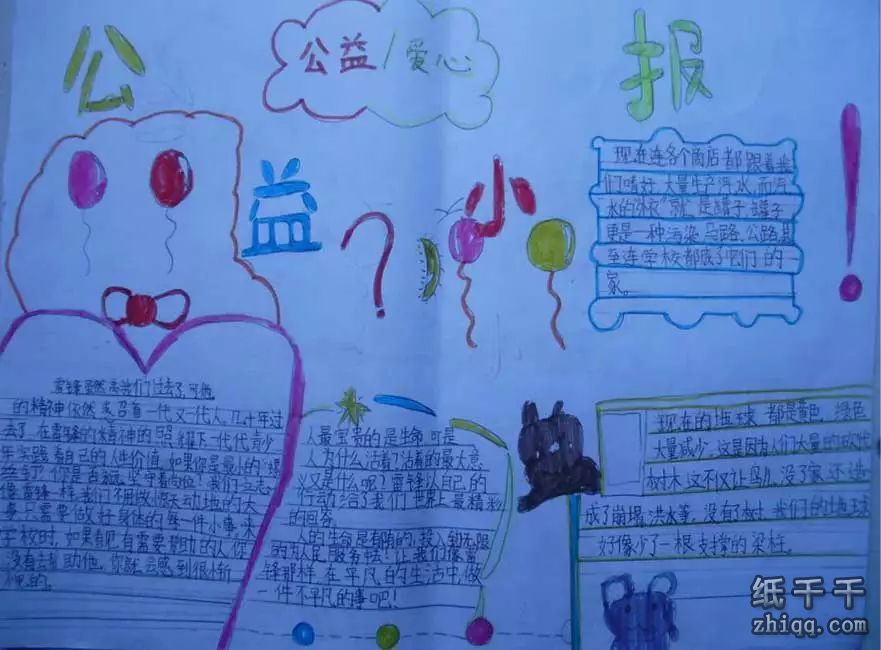 公
公益/爱心
报
益
?
小
!
现在连各个商店都跟着我
们嗜好,大量生产汽水,而汽
水的"衣"就是罐子,罐子
更是一种污染,马路、公路,甚
至连学校都成了它们的
家。
雷锋虽然离我们过去了,可他
的精神依然召着一代又一代人,几十年过
去了,在雷锋的精神的照耀下一代代青少
年实践着自己的人生价值,如果你是最小的"螺
丝钉"你是否永远坚守着岗位?我们立志
像雷锋一样,我们不用做惊天动地的大
事,只需要做好身体的每一件小事,来
学校时,如果看见有需要帮助的人,你
没有去帮助他,你就会感到很惭
愧的。
人最宝贵的是生命,可是
人为什么活着?活着的最大意
义又是什么呢?雷锋以自己的
行动给了我们世界上最精彩
的回答。
人的生命是有限的,投入到无限
的为人民服务去!让我们像雷
锋那样,在平凡的生活中,做
一件不平凡的事吧!
现在的地球,都是黄色,绿色
大量减少,这是因为人们大量的砍伐
树木,这不仅让鸟儿没了家,还造
成了崩塌、洪水等,没有了树,我们的地球
好像少了一根支撑的梁柱。
纸千千
zhiqq.com